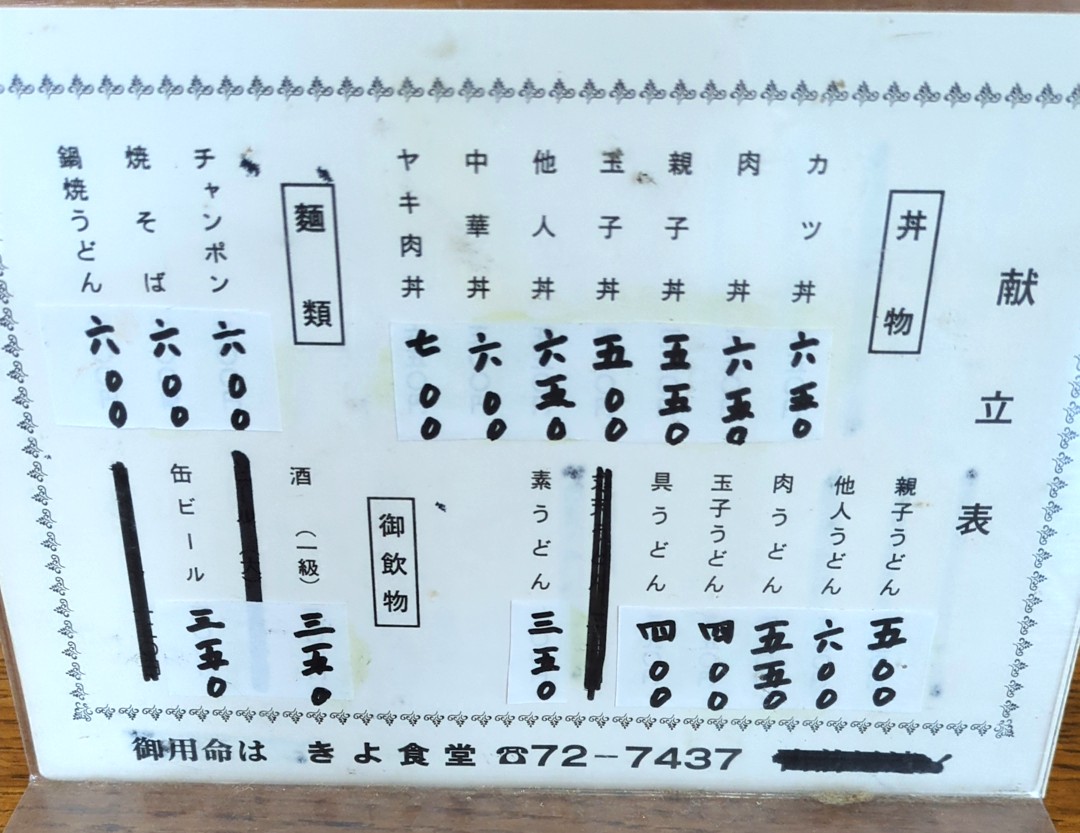 献立表
丼物
カツ丼 六五〇
肉丼 六五〇
親子丼 五五〇
玉子丼 五〇〇
他人丼 六五〇
中華丼 六〇〇
ヤキ肉丼 七〇〇
麺類
チャンポン 六〇〇
焼そば 六〇〇
鍋焼うどん 六〇〇
親子うどん 五〇〇
他人うどん 六〇〇
肉うどん 五五〇
玉子うどん 四〇〇
具うどん 四〇〇
素うどん 三五〇
御飲物
酒(一級) 三五〇
缶ビール 三五〇
御用命は きよ食堂 ☎72-7437